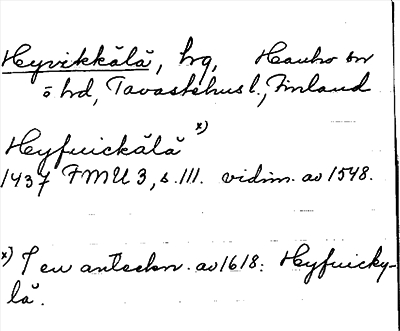 Hyvikkälä, by, Hauho sn
ö hd, Tavastehus l., Finland
Heyfuickälä x)
1437 FMU 3, s. 111. vidim. av 1548.
x) I en anteckn. av 1618: Hyfuicky-
lä.